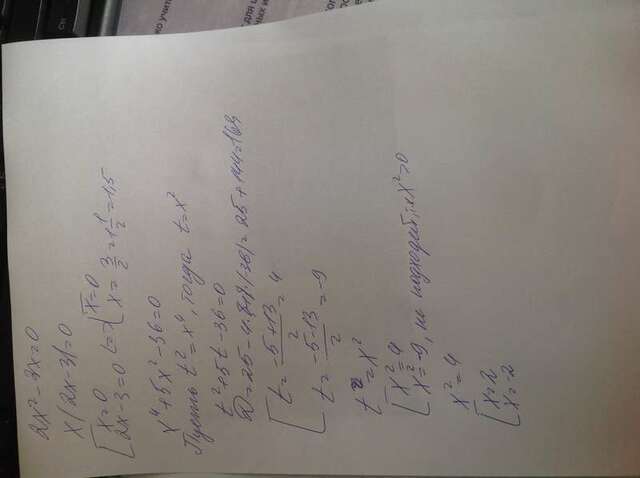 2x²-3x=0
x(2x-3)=0
[x=0
2x-3=0 <=> [x=0
x=3/2=1 1/2=1,5
x⁴+5x²-36=0
Пусть t²=x⁴, тогда t=x²
t²+5t-36=0
D=25-4·1·(-36)=25+144=169
[t=(-5+13)/2=4
t=(-5-13)/2=-9
t=x²
[x²=4
x²=-9, не подходит, т.к x²>0
x²=4
[x=2
x=-2